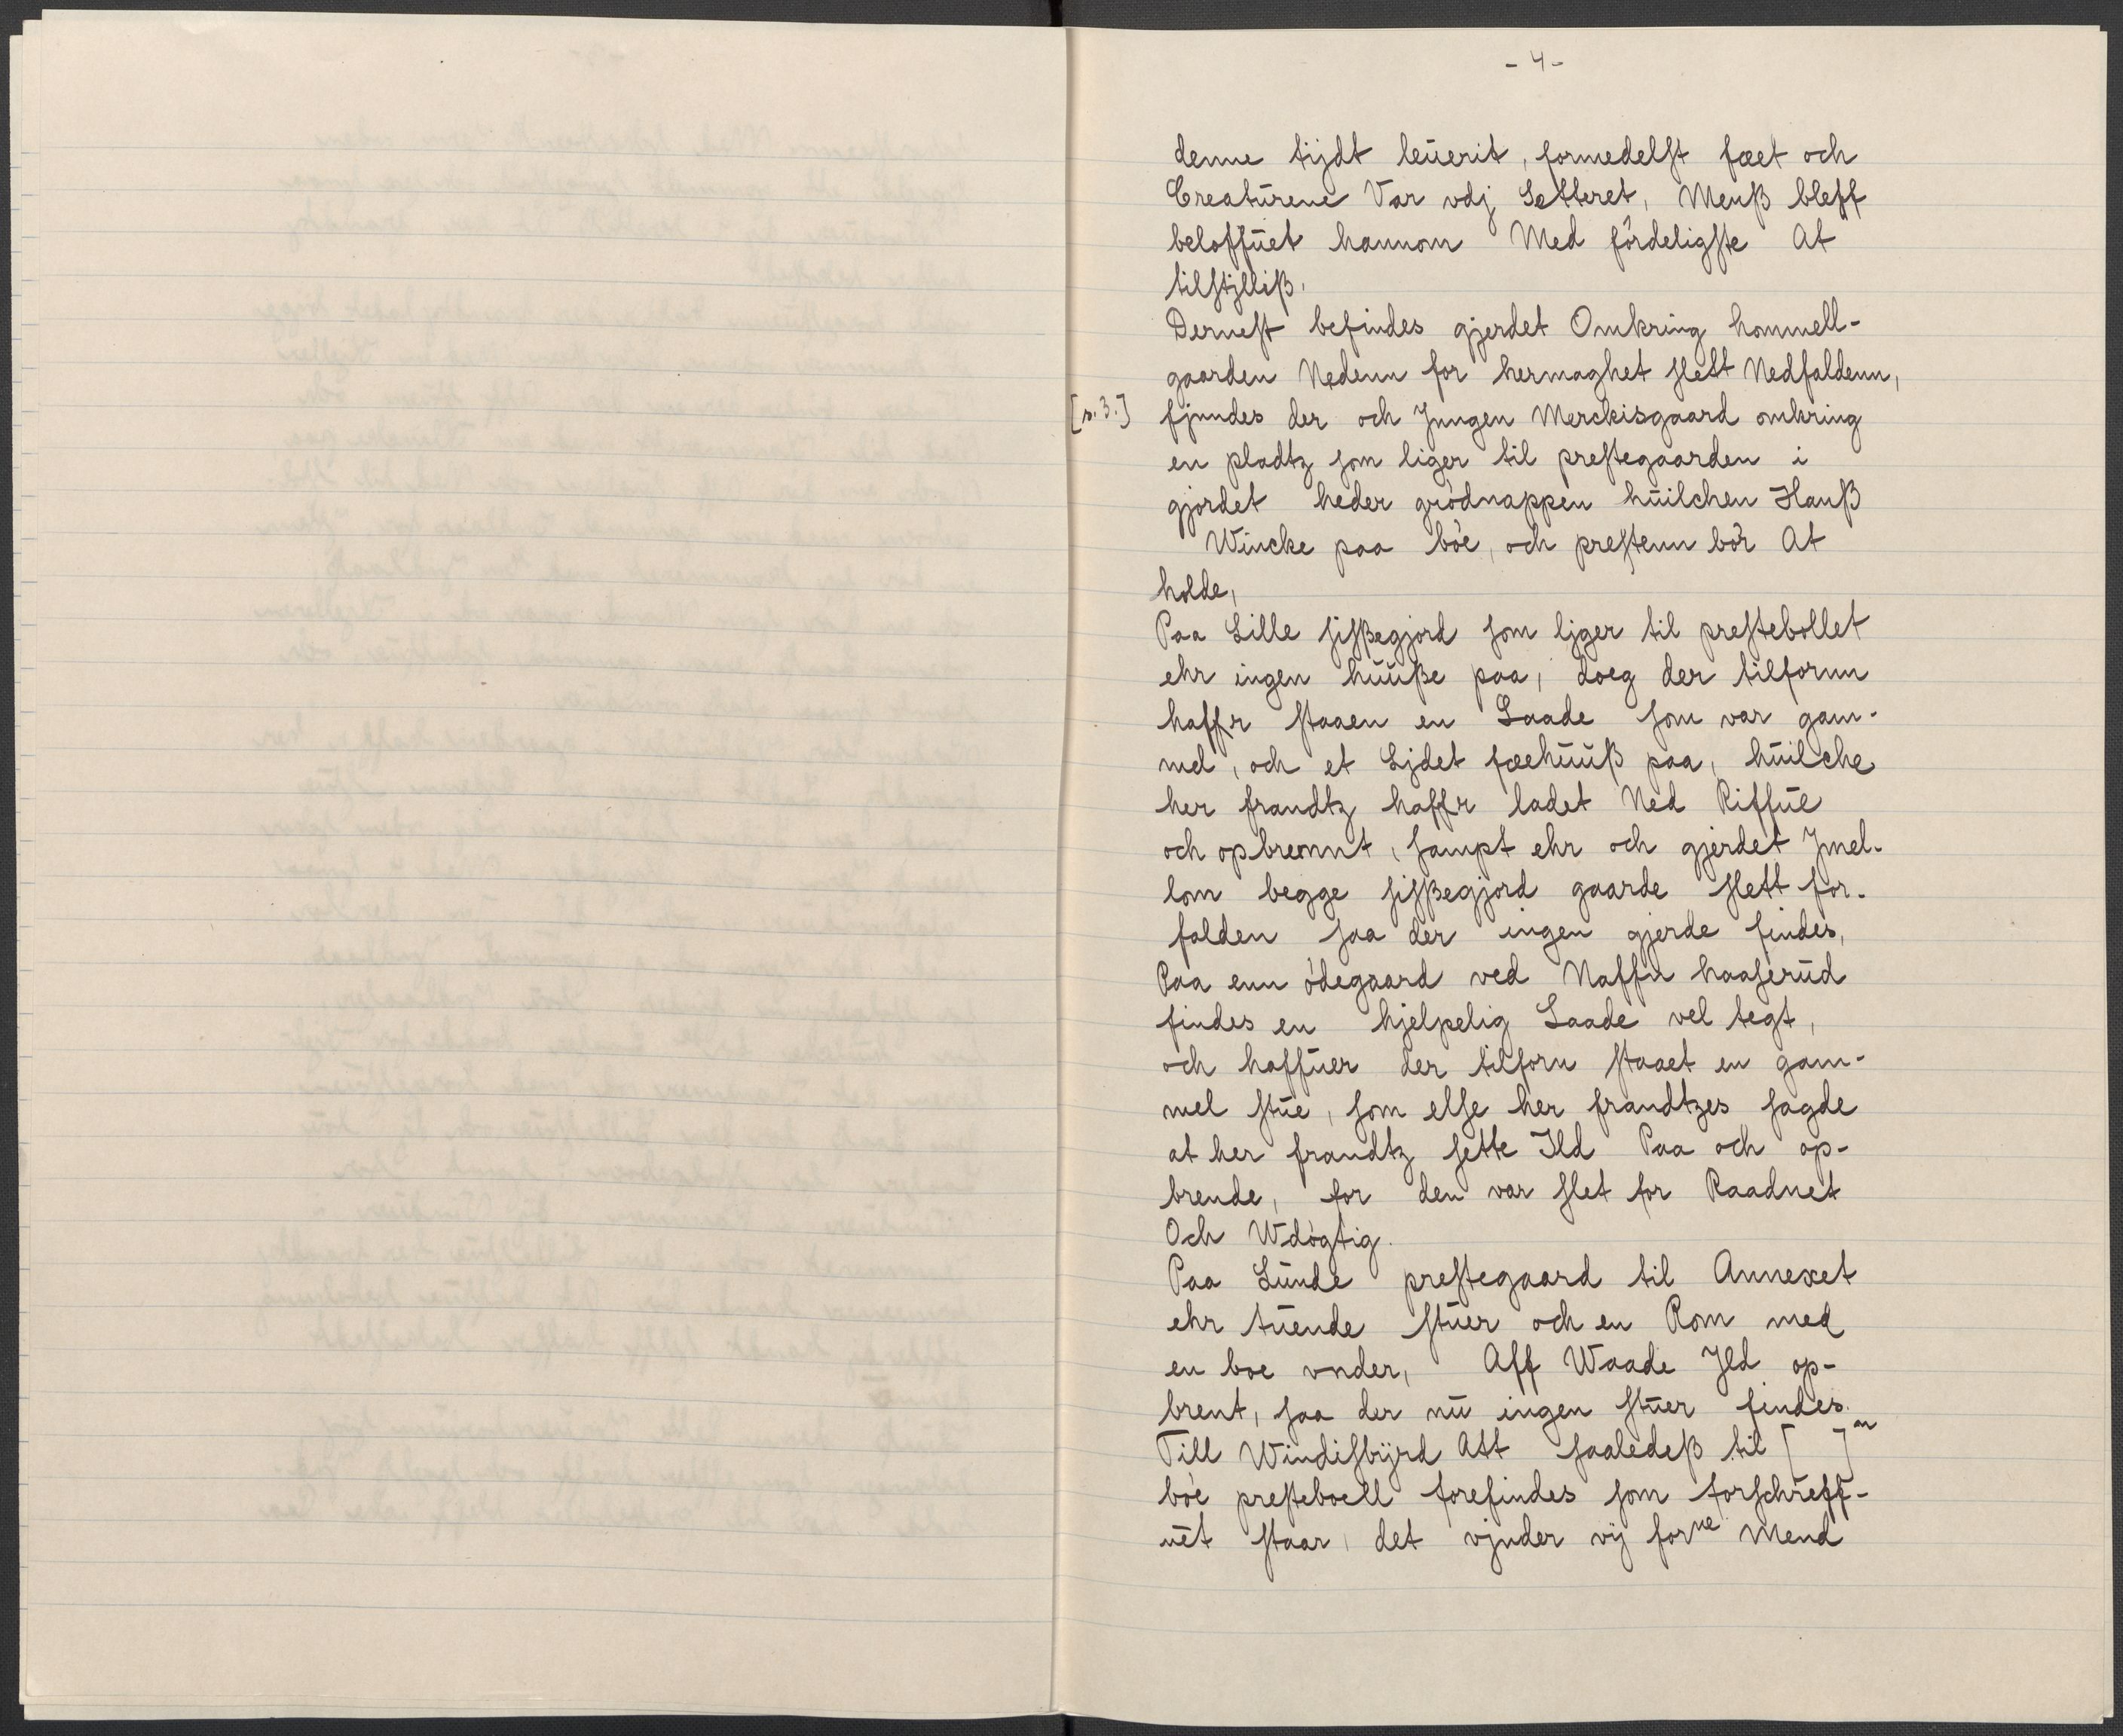 - 4 -
denne tijdt leŭerit, formedelst fæet och
Creatŭrene Var vdj Setteret, Menß bleff
beloffŭet hannom Med fördeligste At
tilstjlliß.
Dernest befindes gjerdet Omkring hommell-
gaarden Nedenn for hermaghet slett Nedfaldenn,
[s. 3.] fjnndes der och Jngen Merckisgaard omkring
en pladtz som liger til prestegaarden i
gjordet heder grödnappen hŭilchen Hanß
Wincke paa böe, och prestenn bör At
holde,
Paa Lille sißegjord som ljger til prestebollet
ehr ingen hŭŭße paa, doeg der tilfornn
haffr staaen en Laade som var gam-
mel, och et Ljdet fæehŭŭß paa, hŭilche
her frandtz haffr ladet Ned Riffŭe
och opbrennt, sampt ehr och gjerdet Jmel-
lom begge sißegjord gaarde slett for-
falden saa der ingen gjerde findes,
Paa enn ödegaard ved Naffn haaserŭd
findes en hjelpelig Laade vel tegt,
och haffŭer der tilforn staaet en gam-
mel stŭe, som else her frandtzes sagde
at her frandtz sette Ild Paa och op-
brende, for den var slet for Raadnet
Och Wdögtig.
Paa Lŭnde prestegaard til Annexet
ehr tŭende stŭer och en Rom med
en boe vnder, Aff Waade Jld op-
brent, saa der nŭ ingen stŭer findes.
Till Windisbyrd Att saaledeß til [ ]m
böe presteboell forefindes som forschreff-
ŭet staar, det vjnder vij forne Mend